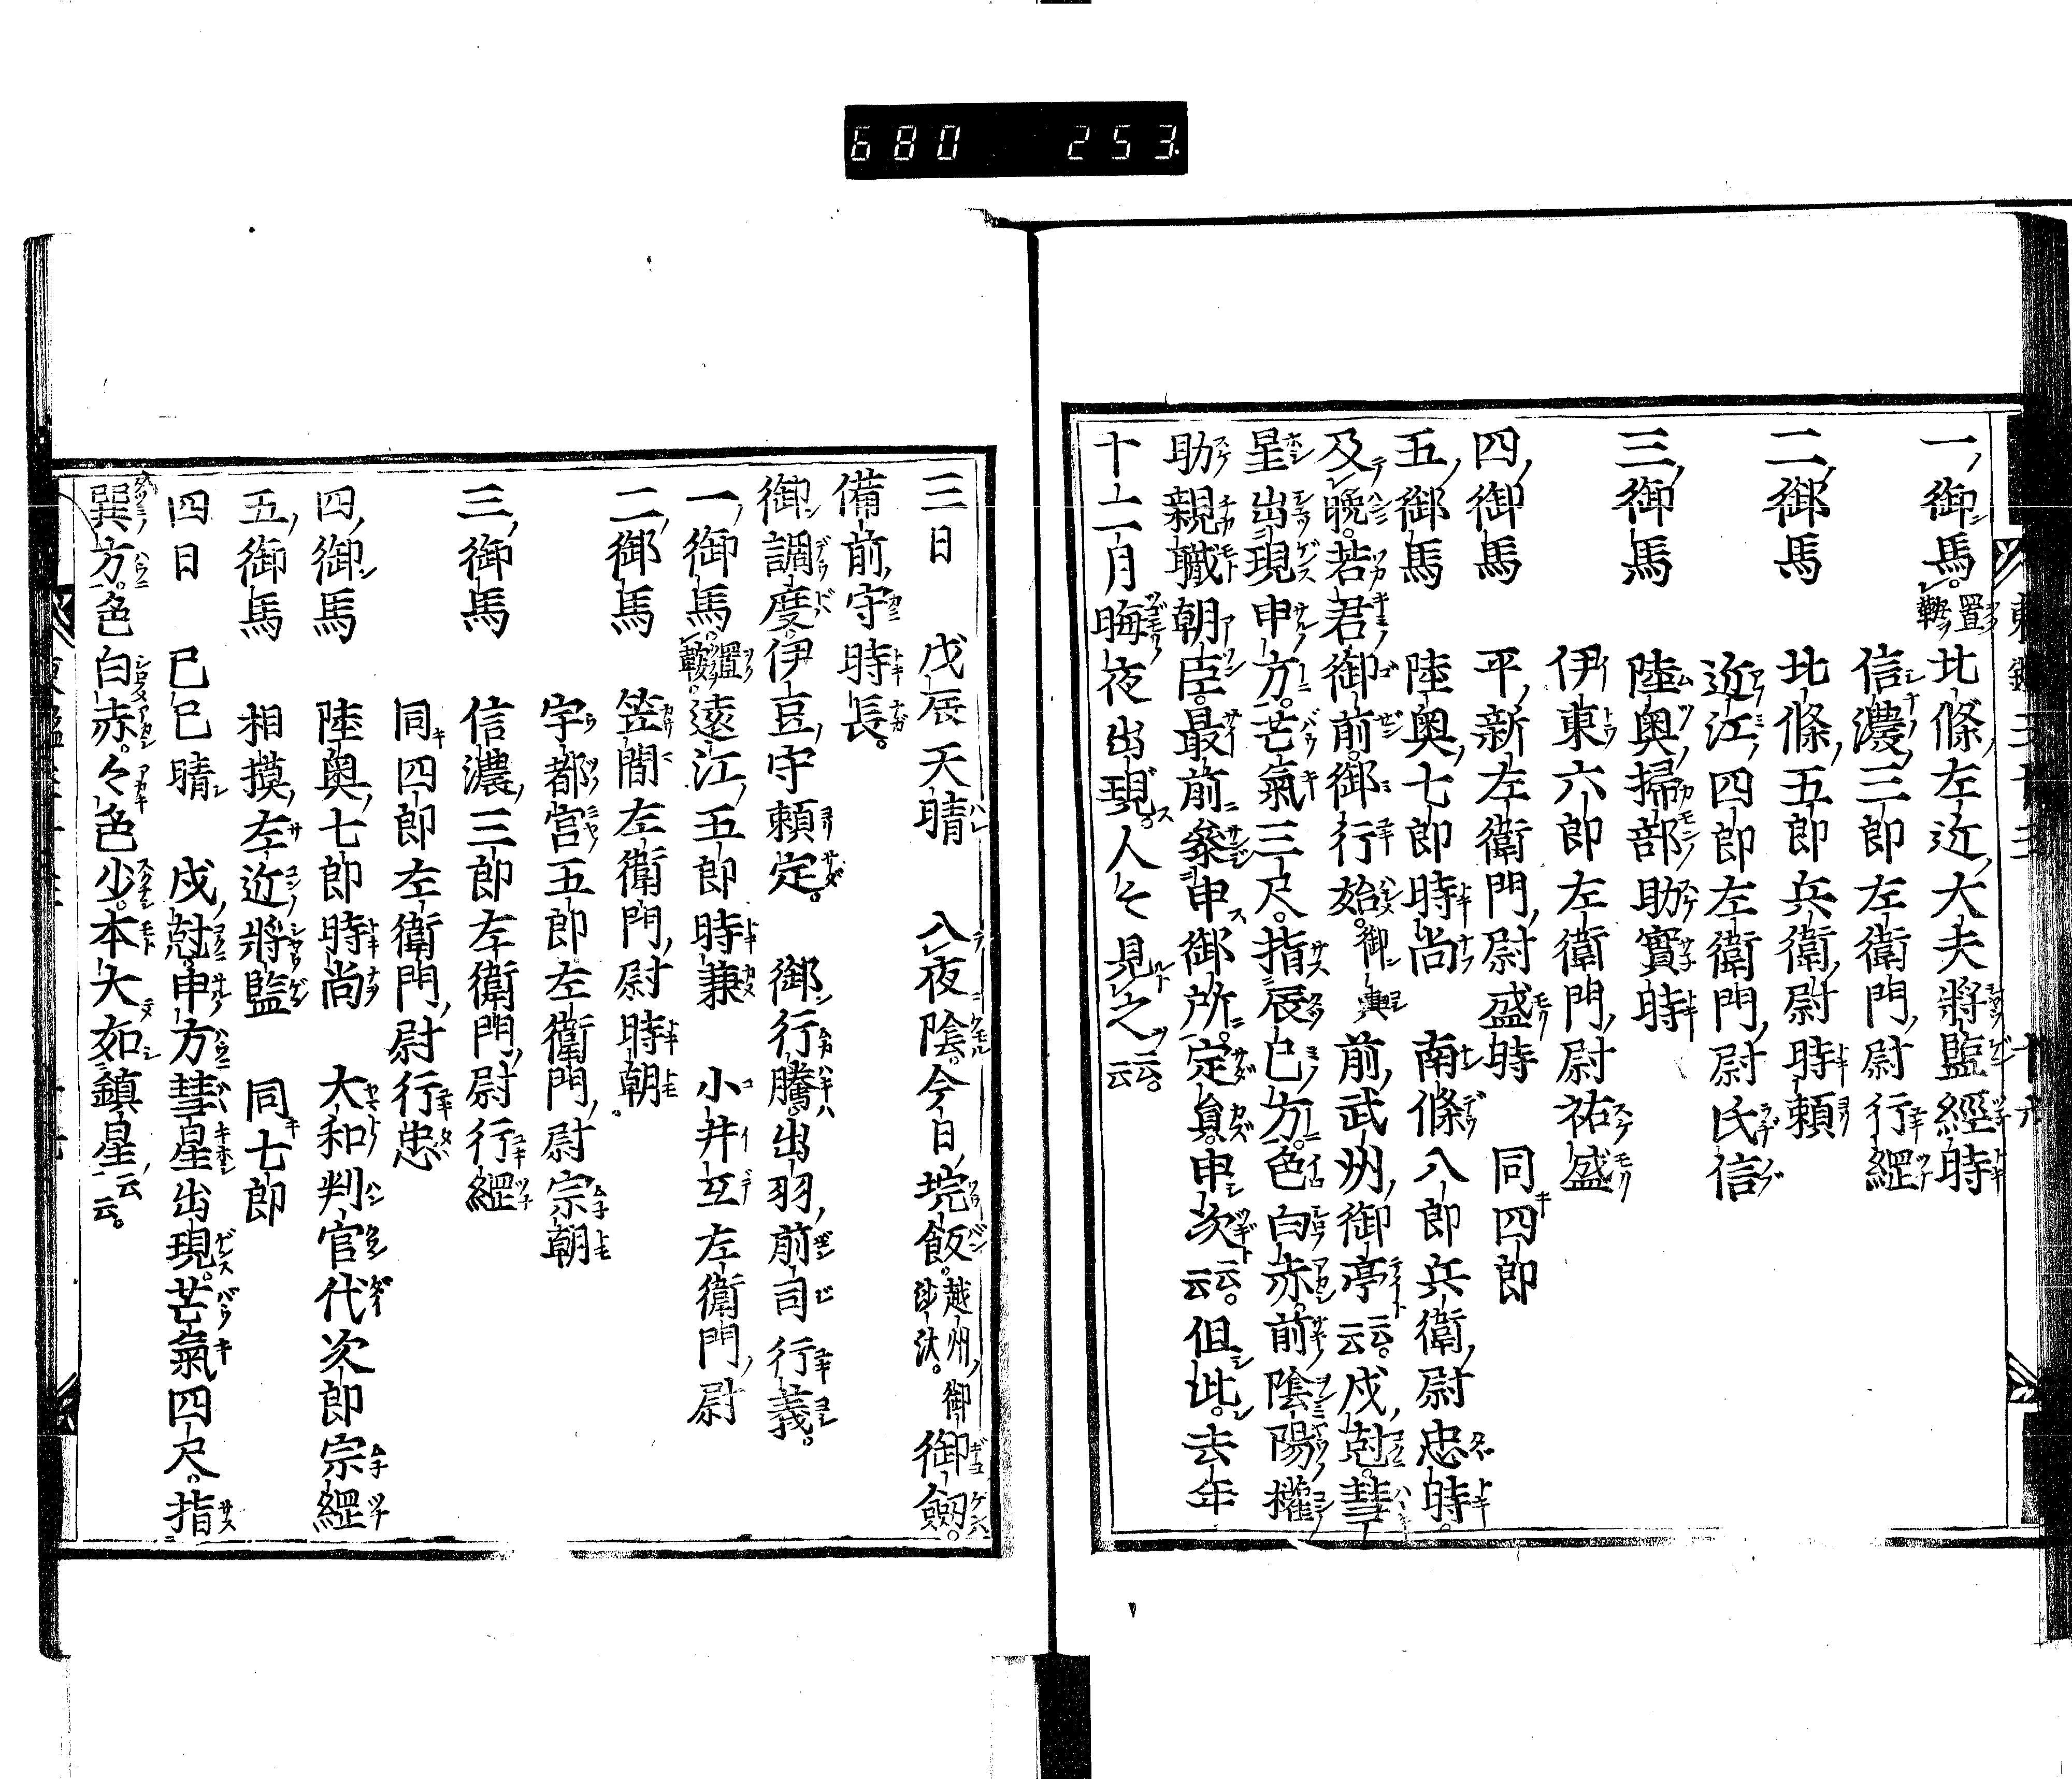 680 253
一御馬置鞍北條左近大夫將監經時
信濃三郎左衛門尉行綱
二御馬 北條五郎兵衛尉時頼
近江四郎左衛門尉氏信
三御馬 陸奥掃部助實時
伊東六郎左衛門尉祐盛
四御馬 平新左衛門尉盛時 同四郎
五御馬 陸奥七郎時尚 南條八郎兵衛尉忠時
及晩若君御前御行始御輿前武州御亭云云戌尅彗
星出現申方芒氣三尺指辰巳方色白赤前陰陽權
助親職朝臣最前參申御所定貟申次云云但此去年
十二月晦夜出現人々見之云云
三日 戊辰天晴 入夜陰今日垸飯越州御沙汰御劔
備前守時長
御調度伊豆守頼定 御行騰出羽前司行義
一御馬置鞍遠江五郎時兼 小井弖左衛門尉
二御馬 笠間左衛門尉時朝
宇都宮五郎左衛門尉宗朝
三御馬 信濃三郎左衛門尉行綱
同四郎左衛門尉行忠
四御馬 陸奥七郎時尚 大和判官代次郎宗綱
五御馬 相摸左近將監 同七郎
四日 己巳晴 戌尅申方彗星出現芒氣四尺指
巽方色白赤々色少本大如鎮星云云